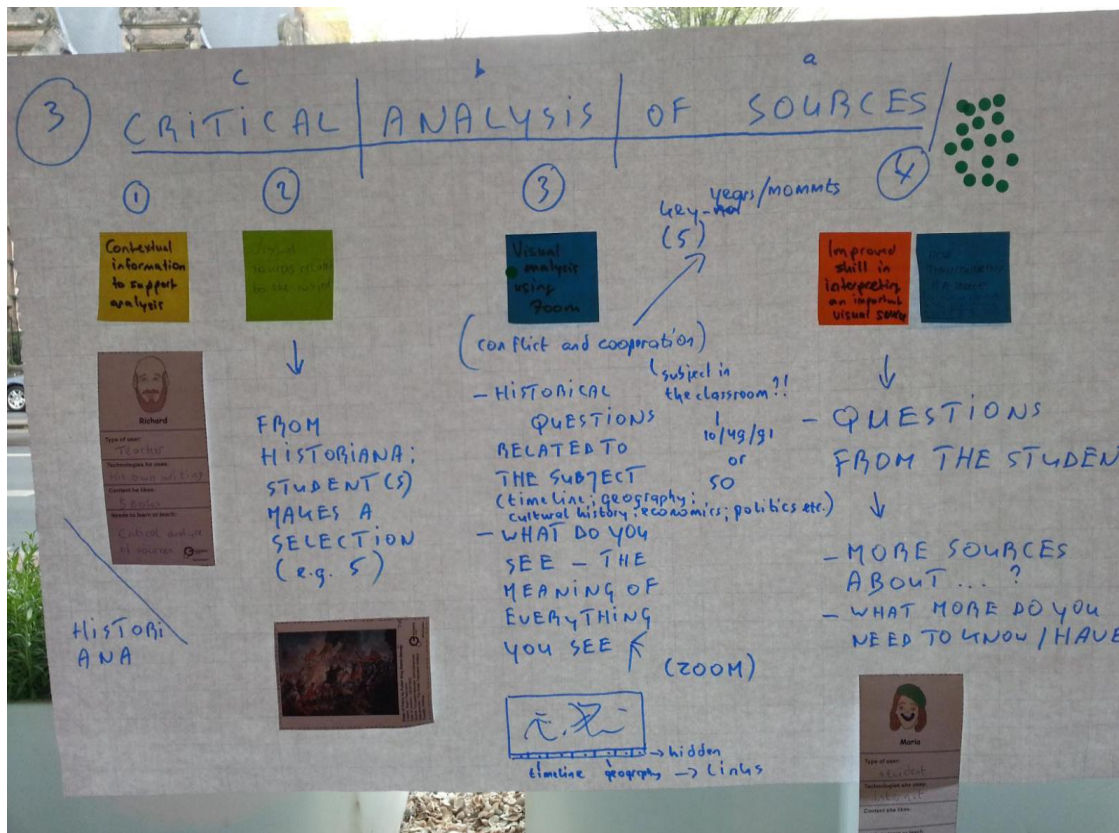 c b a
3 CRITICAL | ANALYSIS | OF SOURCES /
1
2
3
4
Contextual
information
to support
analysis
Richard
Type of user:
Teacher
Technologies he uses:
His own writing
Content he likes:
Books
Needs to learn or teach:
Critical analysis
of sources
HISTORI
ANA
to the subject
↓
FROM
HISTORIANA:
STUDENT(S)
MAKES A
SELECTION
(e.g. 5)
Visual
analysis
using
Zoom
years/mommts
key-
(5)
(conflict and cooperation)
subject in
the classroom?!
10/49/91
or
SO
- HISTORICAL
QUESTIONS
RELATED TO
THE SUBJECT
(timeline; geography;
cultural history; economics; politics etc.)
- WHAT DO YOU
SEE - THE
MEANING OF
EVERYTHING
YOU SEE
(ZOOM)
→ hidden
timeline geography → Links
Improved
skill in
interpreting
an important
visual source
↓
- QUESTIONS
FROM THE STUDEN
↓
- MORE SOURCES
ABOUT...?
- WHAT MORE DO YOU
NEED TO KNOW/HAVE
Maria
Type of user:
Student
Technologies she uses:
Internet
Content she likes: